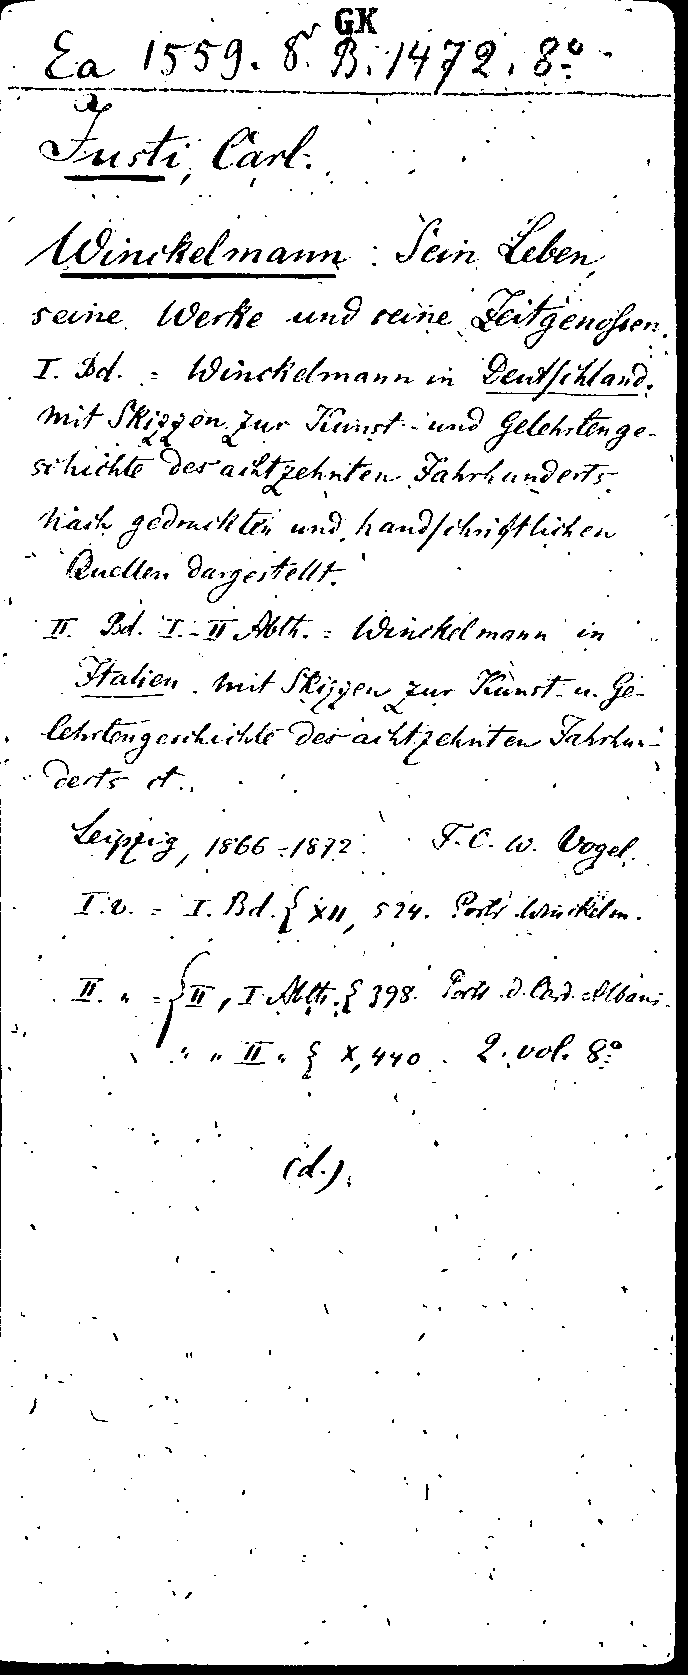 GK
Ea 1559. 8. B. 1472. 8º
Justi, Carl.
Winckelmann : Sein Leben,
seine Werke und seine Zeitgenossen.
I. Bd. = Winckelmann in Deutschland.
mit Skizzen zur Kunst- und Gelehrtenge-
schichte des achtzehnten Jahrhunderts.
Nach gedruckten und handschriftlichen
Quellen dargestellt.
II. Bd. I.-II Abth. = Winckelmann in
Italien. mit Skizzen zur Kunst- u. Ge-
lehrtengeschichte des achtzehnten Jahrhun-
derts ct.
Leipzig, 1866-1872. F. C. W. Vogel.
I. v. = I. Bd. { XII, 524. Portr Winckelm.
II. " = { II, I Abth. { 398. Portr d. Card. Albani.
" " II " { X, 440. 2. vol. 8º
(d.)